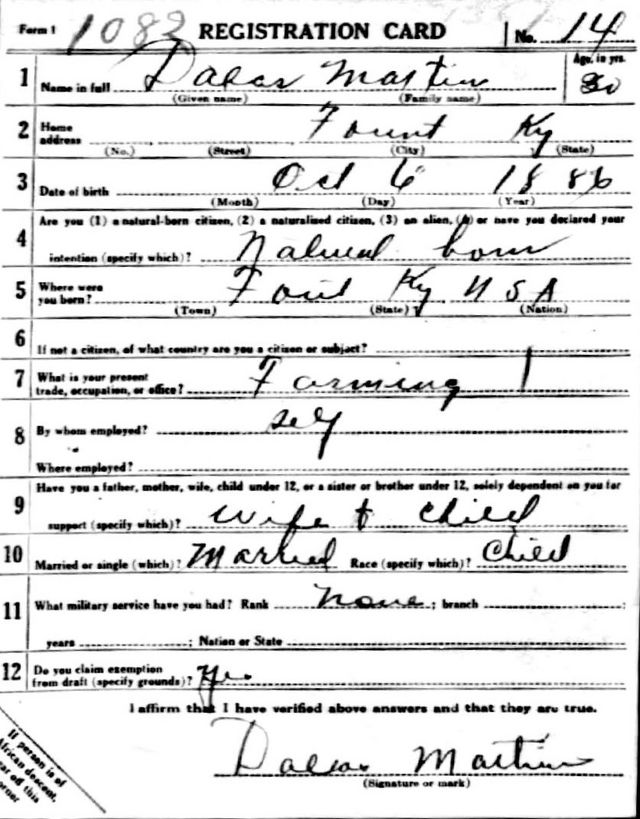 Form 1 1082 REGISTRATION CARD No. 14
1 Name in full Dalas Martin Age, in yrs. 30
(Given name) (Family name)
2 Home address Fount Ky
(No.) (Street) (City) (State)
3 Date of birth Oct 6 1886
(Month) (Day) (Year)
4 Are you (1) a natural-born citizen, (2) a naturalized citizen, (3) an alien, (4) or have you declared your
intention (specify which)? Natural born
5 Where were you born? Fount Ky U S A
(Town) (State) (Nation)
6 If not a citizen, of what country are you a citizen or subject?
7 What is your present trade, occupation, or office? Farming 1
8 By whom employed? self
Where employed?
9 Have you a father, mother, wife, child under 12, or a sister or brother under 12, solely dependent on you for
support (specify which)? Wife & Child
10 Married or single (which)? Married Race (specify which)? Child
11 What military service have you had? Rank None ; branch ;
years ; Nation or State
12 Do you claim exemption from draft (specify grounds)? Yes
I affirm that I have verified above answers and that they are true.
Dalas Martin
(Signature or mark)
If person is of
African descent,
tear off this
corner